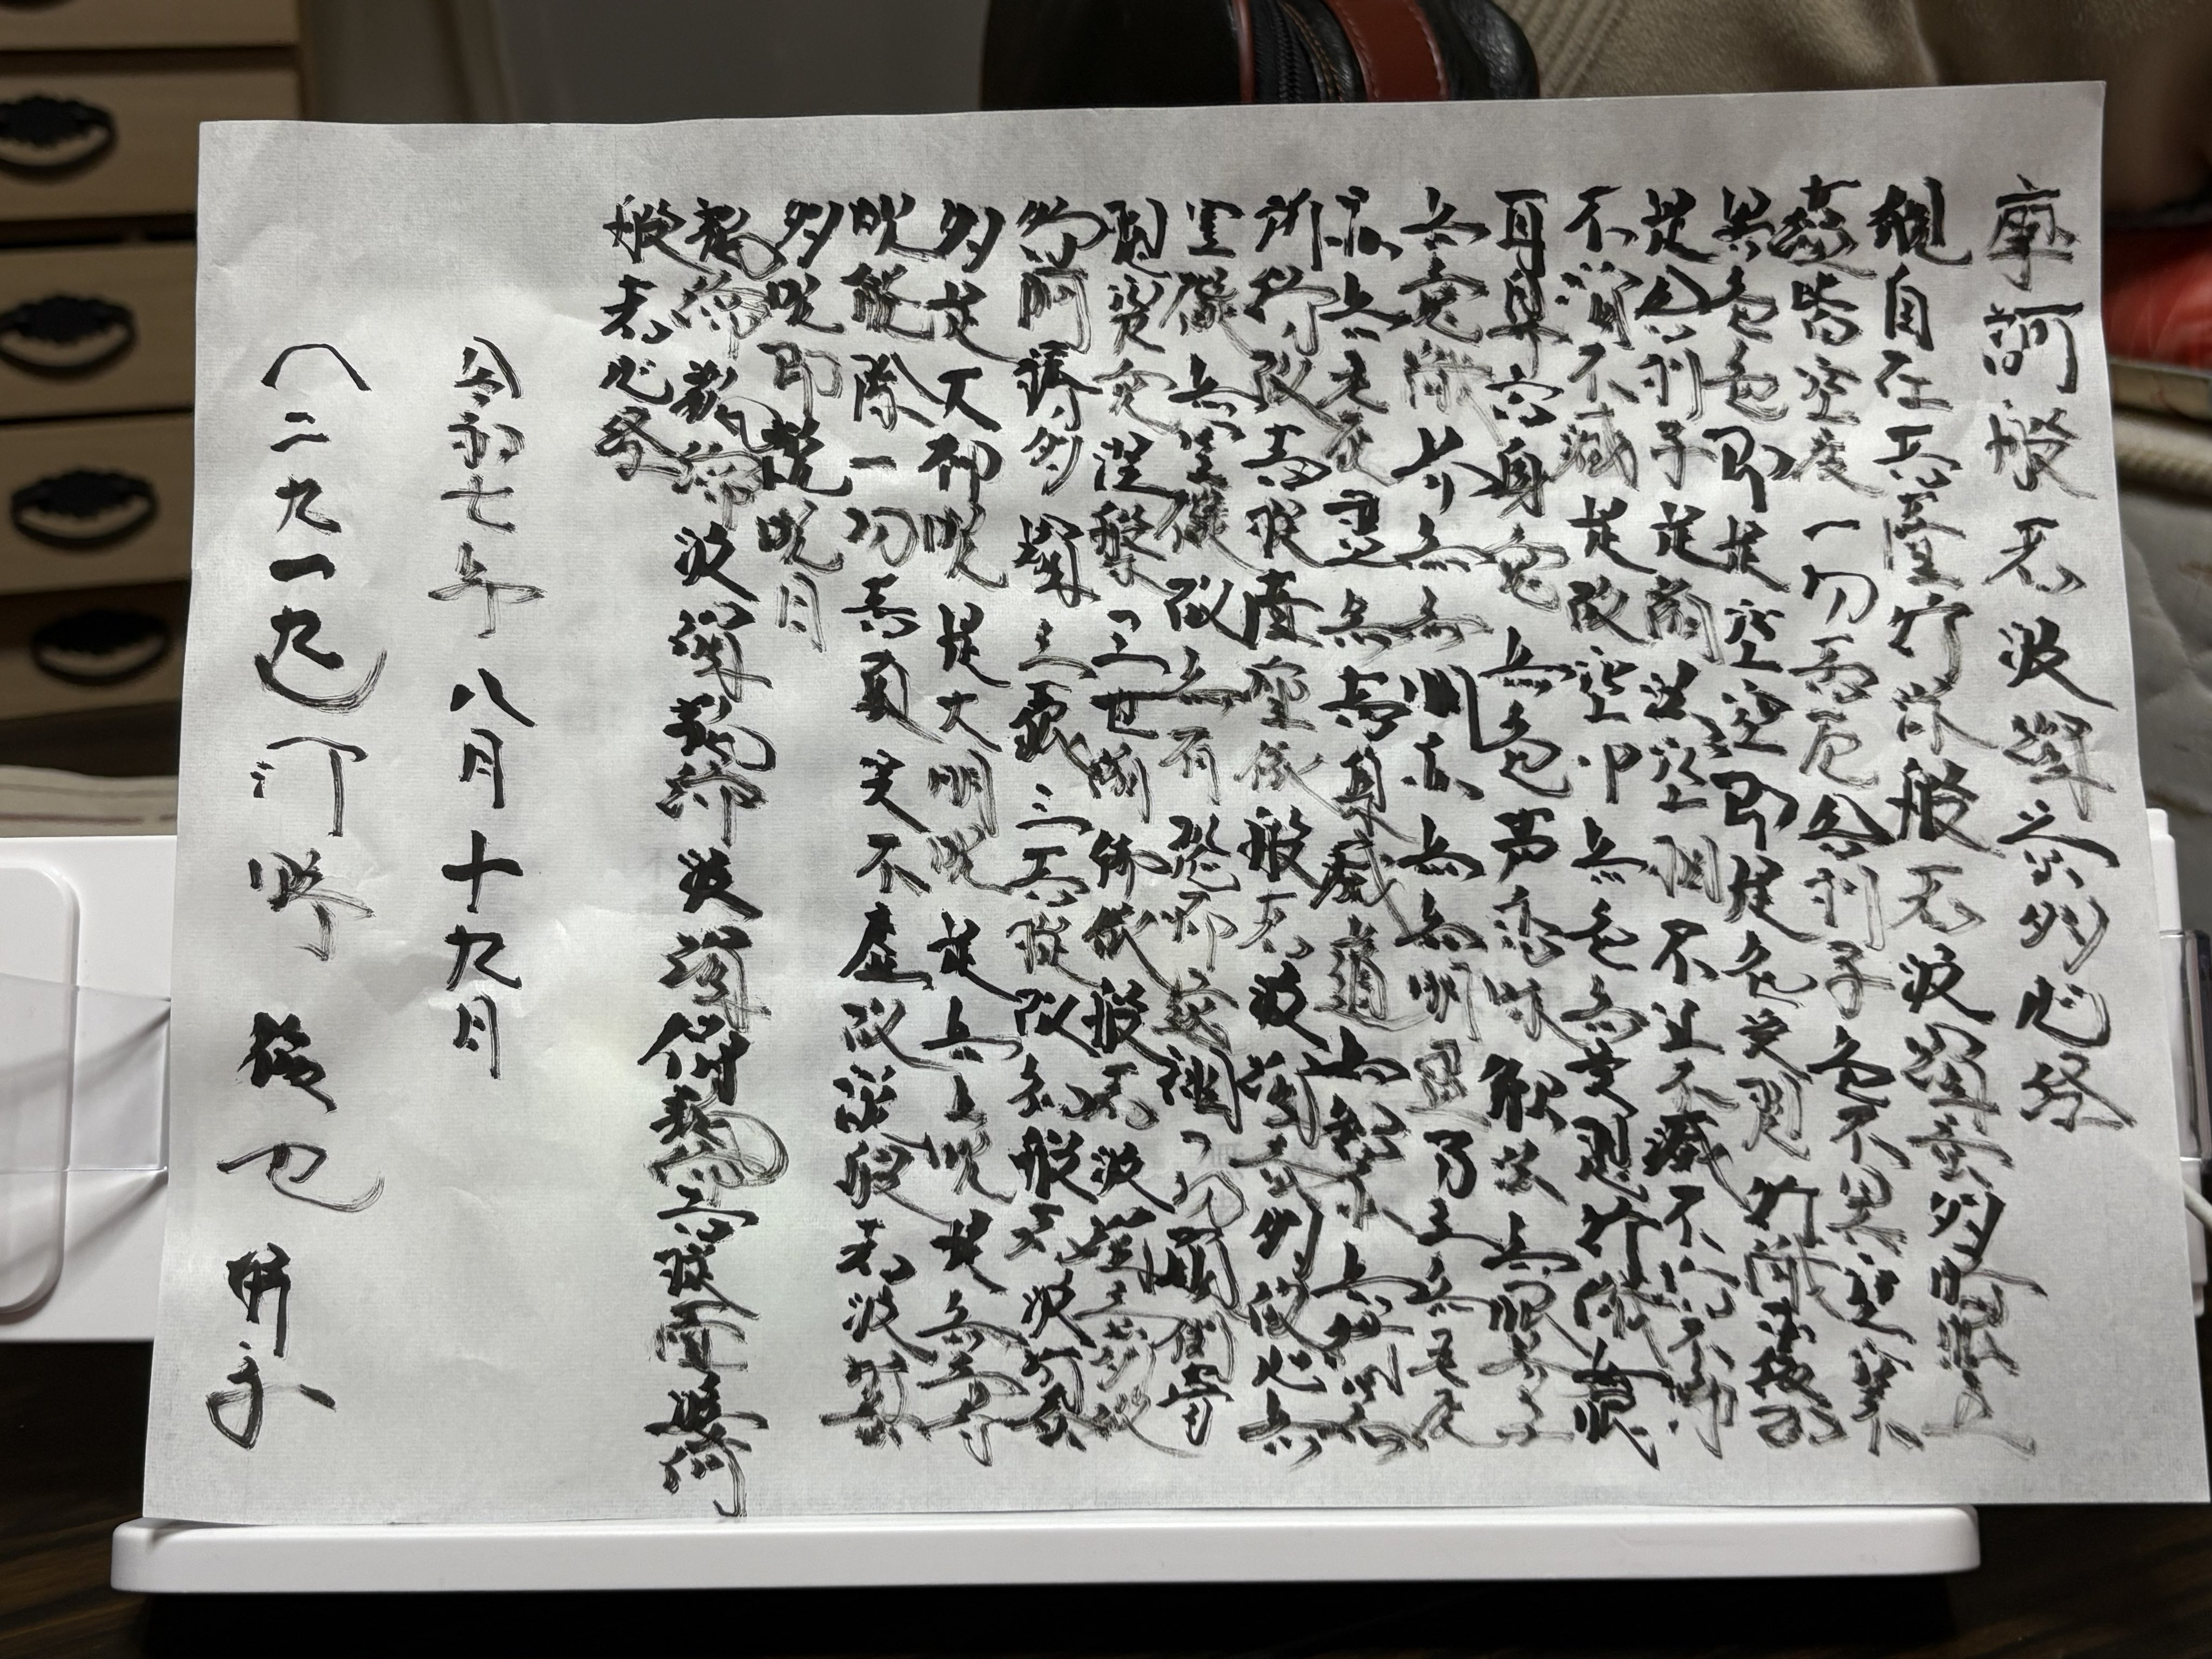 摩訶般若波羅蜜多心経
観自在菩薩行深般若波羅蜜多時照見五
蘊皆空度一切苦厄舎利子色不異空空不
異色色即是空空即是色受想行識亦復如
是舎利子是諸法空相不生不滅不垢不浄
不増不減是故空中無色無受想行識無眼
耳鼻舌身意無色声香味触法無眼界乃至
無意識界無無明亦無無明尽乃至無老死
亦無老死尽無苦集滅道無智亦無得以無
所得故菩提薩埵依般若波羅蜜多故心無
罣礙無罣礙故無有恐怖遠離一切顛倒夢
想究竟涅槃三世諸仏依般若波羅蜜多故
得阿耨多羅三藐三菩提故知般若波羅蜜
多是大神呪是大明呪是無上呪是無等等
呪能除一切苦真実不虚故説般若波羅蜜
多呪即説呪曰
羯諦羯諦波羅羯諦波羅僧羯諦菩提薩婆訶
般若心経
令和七年八月十九日
二九一九 河野